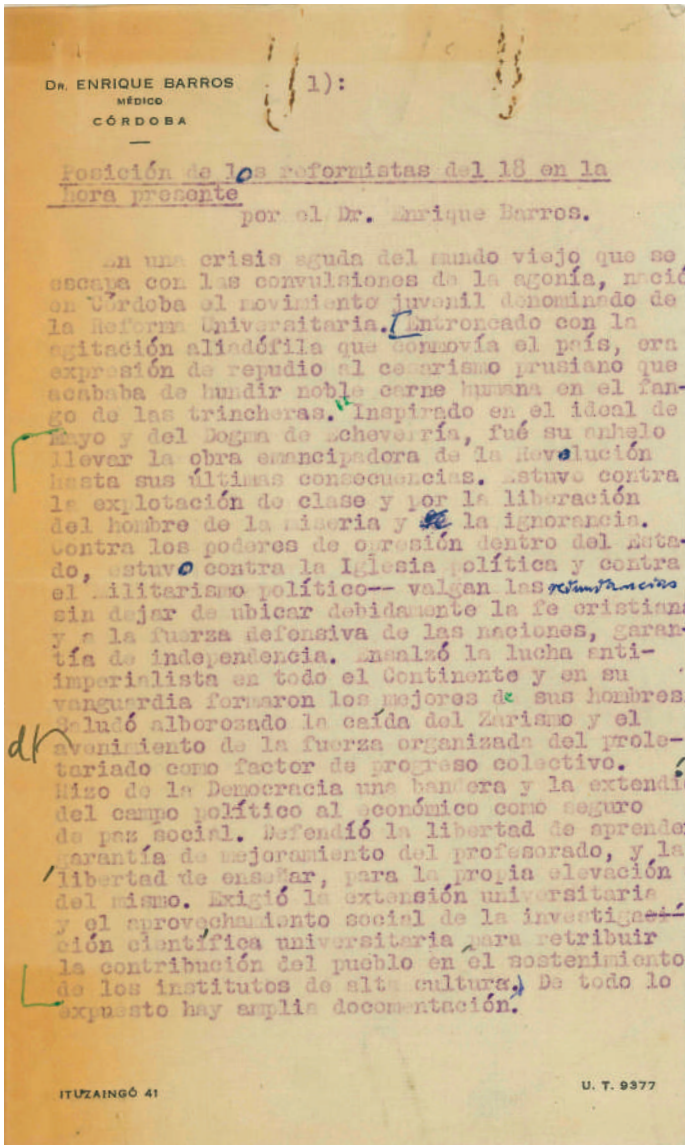 DR. ENRIQUE BARROS
MÉDICO
CÓRDOBA
1):
Posición de los reformistas del 18 en la
hora presente
por el Dr. Enrique Barros.
En una crisis aguda del mundo viejo que se
escapa con las convulsiones de la agonía, nació
en Córdoba el movimiento juvenil denominado de
la Reforma Universitaria. [Entroncado con la
agitación aliadófila que conmovía el país, era
expresión de repudio al cesarismo prusiano que
acababa de hundir noble carne humana en el fan-
go de las trincheras. Inspirado en el ideal de
Mayo y del Dogma de Echeverría, fué su anhelo
llevar la obra emancipadora de la Revolución
hasta sus últimas consecuencias. Estuvo contra
la explotación de clase y por la liberación
del hombre de la miseria y la ignorancia.
Contra los poderes de opresión dentro del Esta-
do, estuvo contra la Iglesia política y contra
el Militarismo político-- valgan las redundancias
sin dejar de ubicar debidamente la fe cristiana
y a la fuerza defensiva de las naciones, garan-
tía de independencia. Ensalzó la lucha anti-
imperialista en todo el Continente y en su
vanguardia formaron los mejores de sus hombres
Saludó alborozado la caída del Zarismo y el
avenimiento de la fuerza organizada del prole-
tariado como factor de progreso colectivo.
Hizo de la Democracia una bandera y la extendi
del campo político al económico como seguro
de paz social. Defendió la libertad de aprender
garantía de mejoramiento del profesorado, y la
libertad de enseñar, para la propia elevación
del mismo. Exigió la extensión universitaria
y el aprovechamiento social de la investigaci-
ción científica universitaria para retribuir
la contribución del pueblo en el sostenimiento
de los institutos de alta cultura.) De todo lo
expuesto hay amplia documentación.
ITUZAINGÓ 41
U. T. 9377